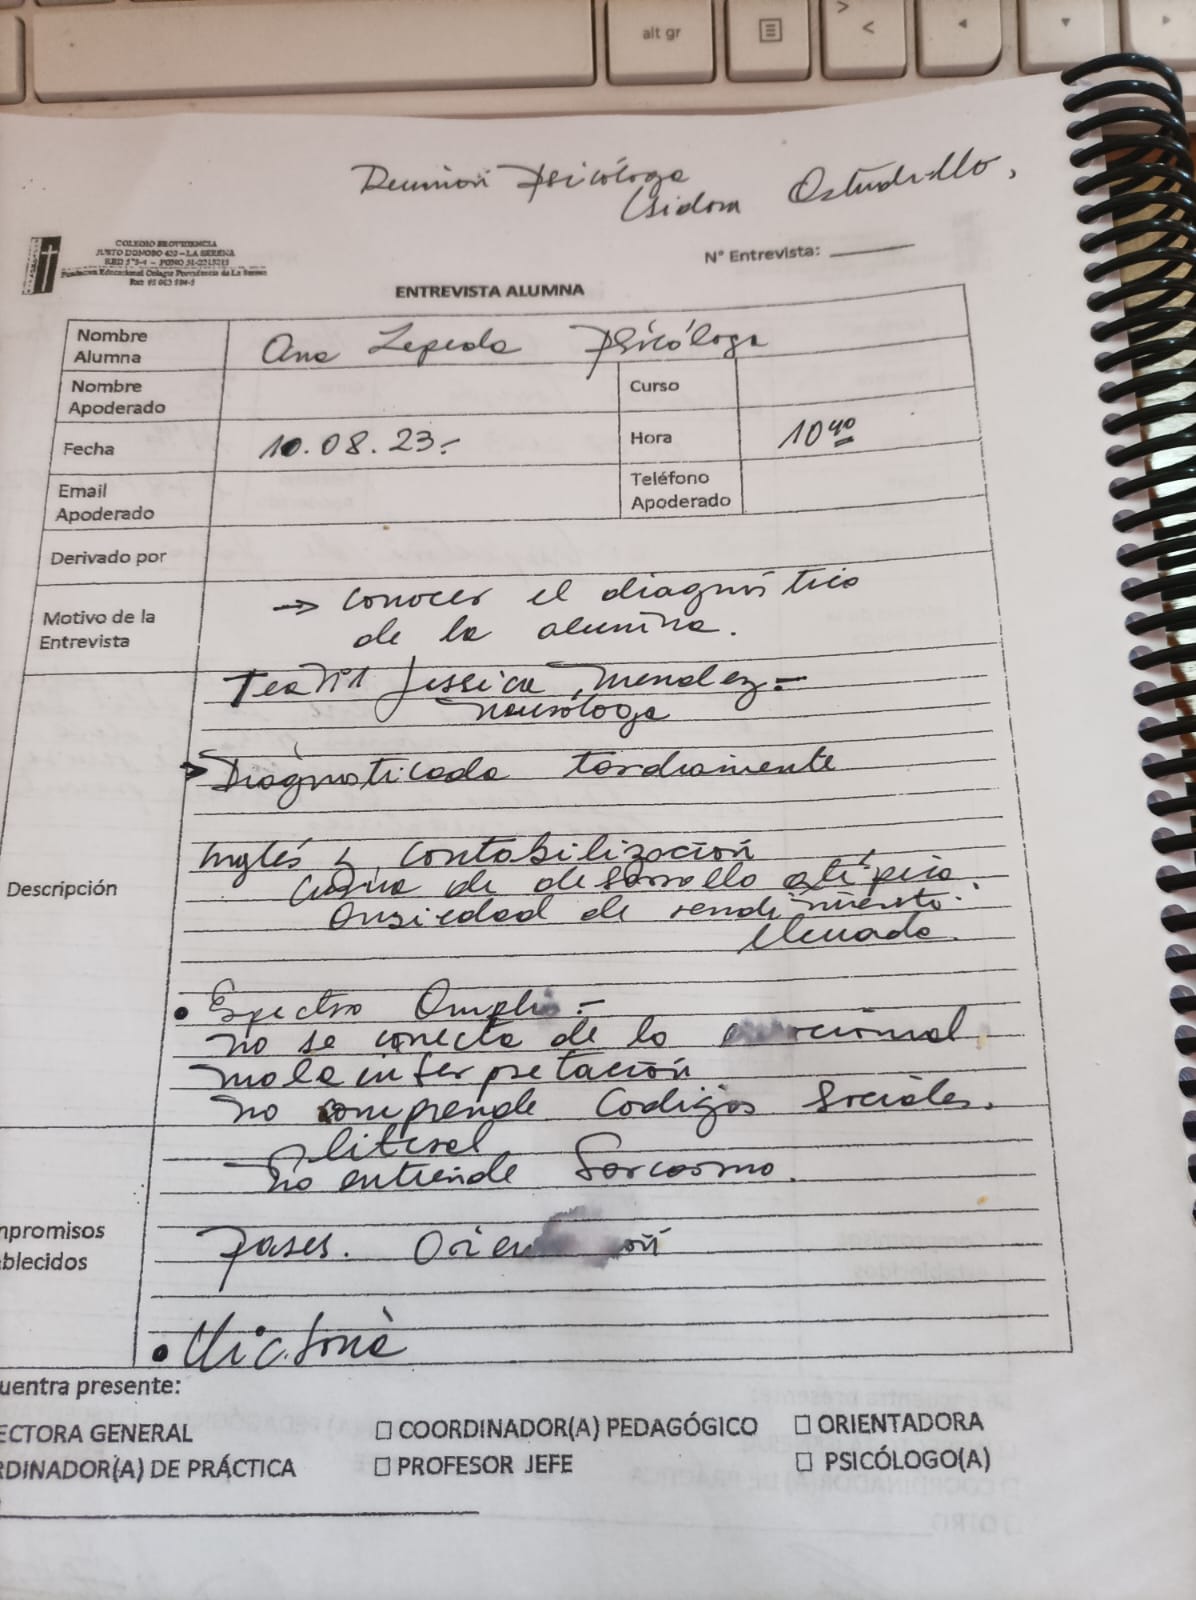 alt gr
>
<
Reunión Psicóloga
Isidora Astudillo,
COLEGIO PROVIDENCIA
JUSTO DONOSO 420 – LA SERENA
Fundación Educacional Colegio Providencia de La Serena
N° Entrevista:
ENTREVISTA ALUMNA
Nombre Alumna
Ana Zepeda Psicóloga
Nombre Apoderado
Curso
Fecha
10.08.23.-
Hora
10 40
Email Apoderado
Teléfono Apoderado
Derivado por
Motivo de la Entrevista
→ Conocer el diagnóstico
de la alumna.
Descripción
Tea N°1 Jessica Mendez.-
neuróloga
→ Diagnosticada tardiamente
Inglés y Contabilización
Curva de desarrollo atípica
Ansiedad de rendimiento.
elevada.
• Espectro Amplio.-
no se conecta de lo emocional
mala interpretación
no comprende Codigos Sociales.
literal
no entiende Sarcasmo.
mpromisos
blecidos
Pases. Orientación
uentra presente:
ECTORA GENERAL
☐ COORDINADOR(A) PEDAGÓGICO
☐ ORIENTADORA
RDINADOR(A) DE PRÁCTICA
☐ PROFESOR JEFE
☐ PSICÓLOGO(A)